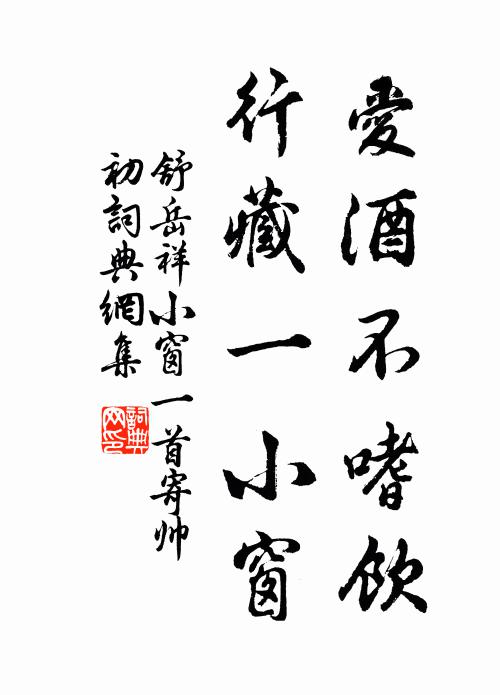 愛酒不嗜飲
行藏一小窗
舒岳祥小窗一首寄帅
初詞典網集
詞典网印